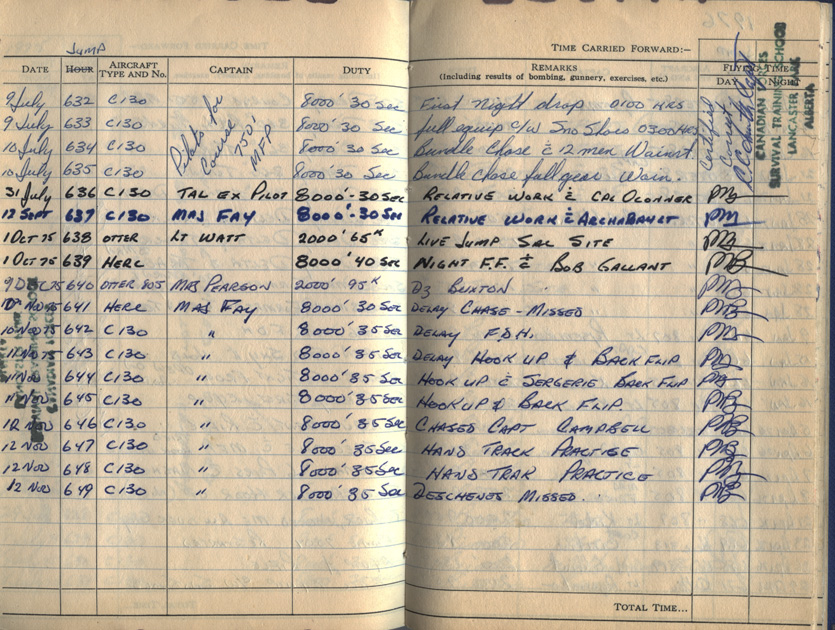 1976
JUMP
TIME CARRIED FORWARD:—
DATE HOUR AIRCRAFT TYPE AND No. CAPTAIN DUTY REMARKS (Including results of bombing, gunnery, exercises, etc.) FLYING TIMES DAY NIGHT
9 July 632 C130 8000' 30 Sec First Night drop 0100 HRS
9 July 633 C130 8000' 30 Sec full equip c/w Sno Shoes 0300 HRS
10 July 634 C130 8000' 30 Sec Bundle Chase c̄ 12 men Wainwt.
10 July 635 C130 8000' 30 Sec Bundle Chase full gear Wain.
Pilots for Course 7501 MFP
Certified Correct
CANADIAN FORCES
SURVIVAL TRAINING SCHOOL
LANCASTER PARK
ALBERTA
31 July 636 C130 TAL EX PILOT 8000'-30 Sec RELATIVE WORK c̄ CPL OCONNER
12 Sept 637 C130 MAJ FAY 8000'-30 Sec RELATIVE WORK c̄ ARCHABAULT
1 Oct 75 638 OTTER LT WATT 2000' 65K LIVE JUMP SAL SITE
1 Oct 75 639 HERC 8000' 40 Sec NIGHT F.F. c̄ BOB GALLANT
640 OTTER 805 PEARSON 2000' 95K DZ BUXTON
10 Nov 75 641 HERC MAJ FAY 8000 30 Sec DELAY CHASE - MISSED
10 Nov 75 642 C130 " 8000' 35 Sec DELAY
11 Nov 75 643 C130 " 8000' 35 Sec DELAY HOOK UP & BACK FLIP
11 Nov 644 C130 " 8000' 35 Sec HOOK UP c̄ SERGERIE BACK FLIP
11 Nov 645 C130 " 8000' 35 Sec HOOK UP & BACK FLIP.
12 Nov 646 C130 " 8000' 35 Sec CHASED CAPT CAMPBELL
12 Nov 647 C130 " 8000' 35 Sec HAND TRACK PRACTISE
12 Nov 648 C130 " 8000' 35 Sec HAND TRAK PRACTICE
12 Nov 649 C130 " 8000' 35 Sec DESCHENES MISSED.
TOTAL TIME...